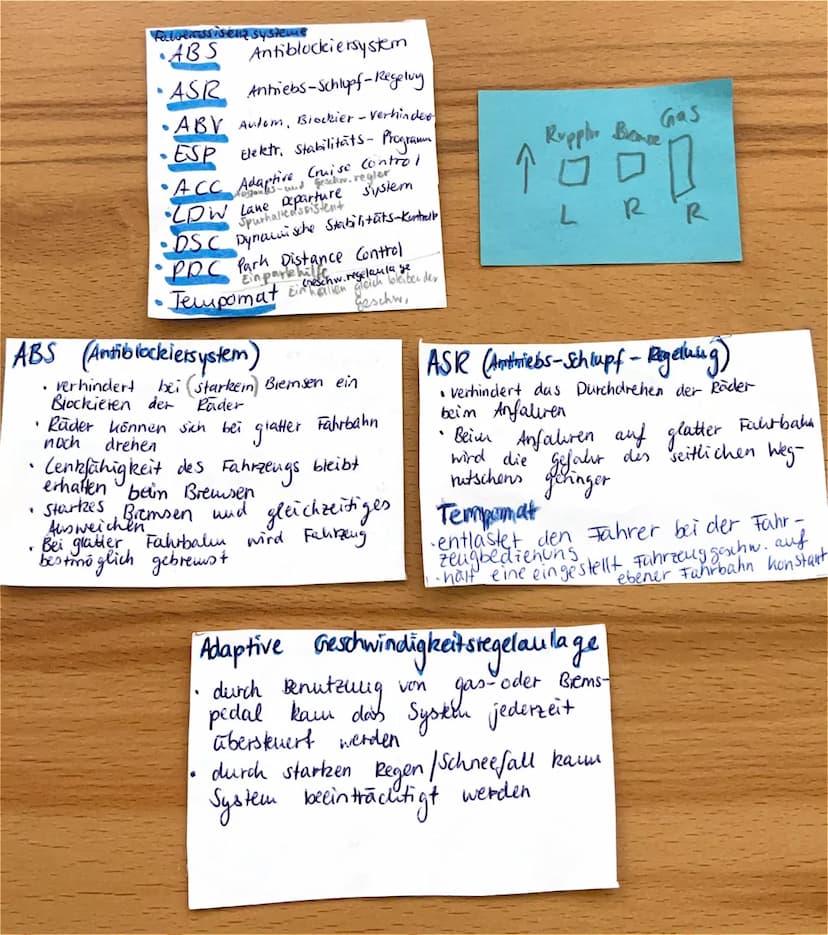 Fahrerassistenzsysteme
• ABS Antiblockiersystem
• ASR Antriebs-Schlupf-Regelung
• ABV Autom. Blockier-Verhinderer
• ESP Elektr. Stabilitäts-Programm
• ACC Adaptive Cruise Control
Abstands- und Geschw.regler
• LDW Lane Departure System
Spurhalteassistent
• DSC Dynamische Stabilitäts-Kontrolle
• PDC Park Distance Control
Einparkhilfe
• Tempomat Geschw.regelanlage
Einhalten gleich bleibender
Geschw.
Kupplu Bremse Gas
↑
L R R
ABS (Antiblockiersystem)
• verhindert bei (starkem) Bremsen ein
Blockieren der Räder
• Räder können sich bei glatter Fahrbahn
noch drehen
• Lenkfähigkeit des Fahrzeugs bleibt
erhalten beim Bremsen
• starkes Bremsen und gleichzeitiges
Ausweichen
• Bei glatter Fahrbahn wird Fahrzeug
bestmöglich gebremst
ASR (Antriebs-Schlupf-Regelung)
• verhindert das Durchdrehen der Räder
beim Anfahren
• Beim Anfahren auf glatter Fahrbahn
wird die Gefahr des seitlichen Weg-
rutschens geringer
Tempomat
• entlastet den Fahrer bei der Fahr-
zeugbedienung
• hält eine eingestellt Fahrzeuggeschw. auf
ebener Fahrbahn konstant
Adaptive Geschwindigkeitsregelanlage
• durch Benutzung von Gas- oder Brems-
pedal kann das System jederzeit
übersteuert werden
• durch starken Regen/Schneefall kann
System beeinträchtigt werden